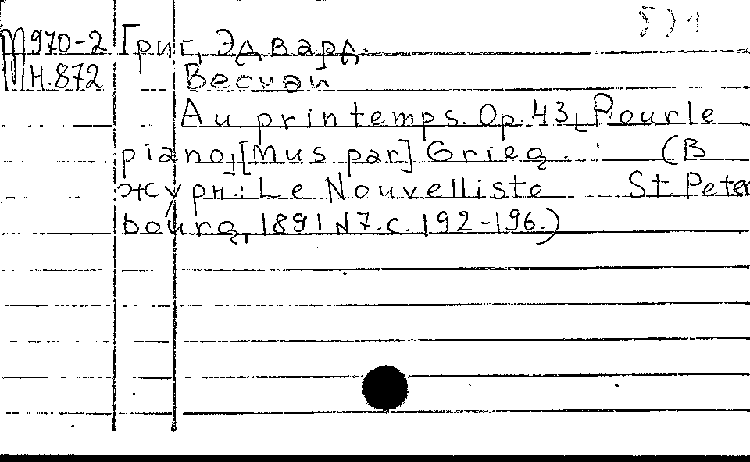 М970-2 Григ, Эдвард.
Н.872 Весной
Au printemps. Op. 43, Pour le
piano, [Mus par] Grieg. (В
журн: Le Nouvelliste St Peter
bourg, 1891 N7. с. 192-196.)